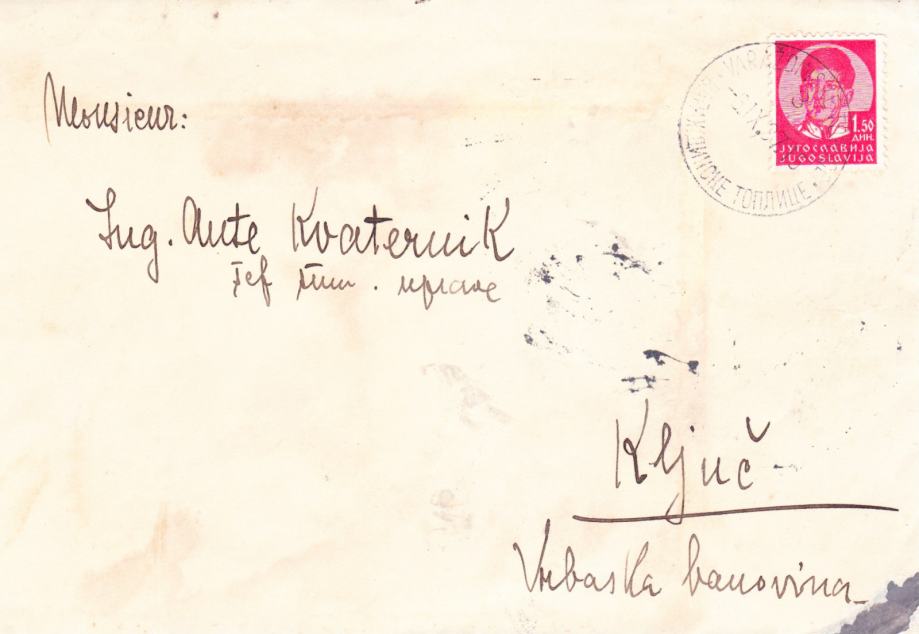 Monsieur:
1.50
ДИН.
ЈУГОСЛАВИЈА
JUGOSLAVIJA
ТОПЛИЦЕ
Ing. Ante Kvaternik
šef šum. uprave
Ključ
Vrbaska banovina